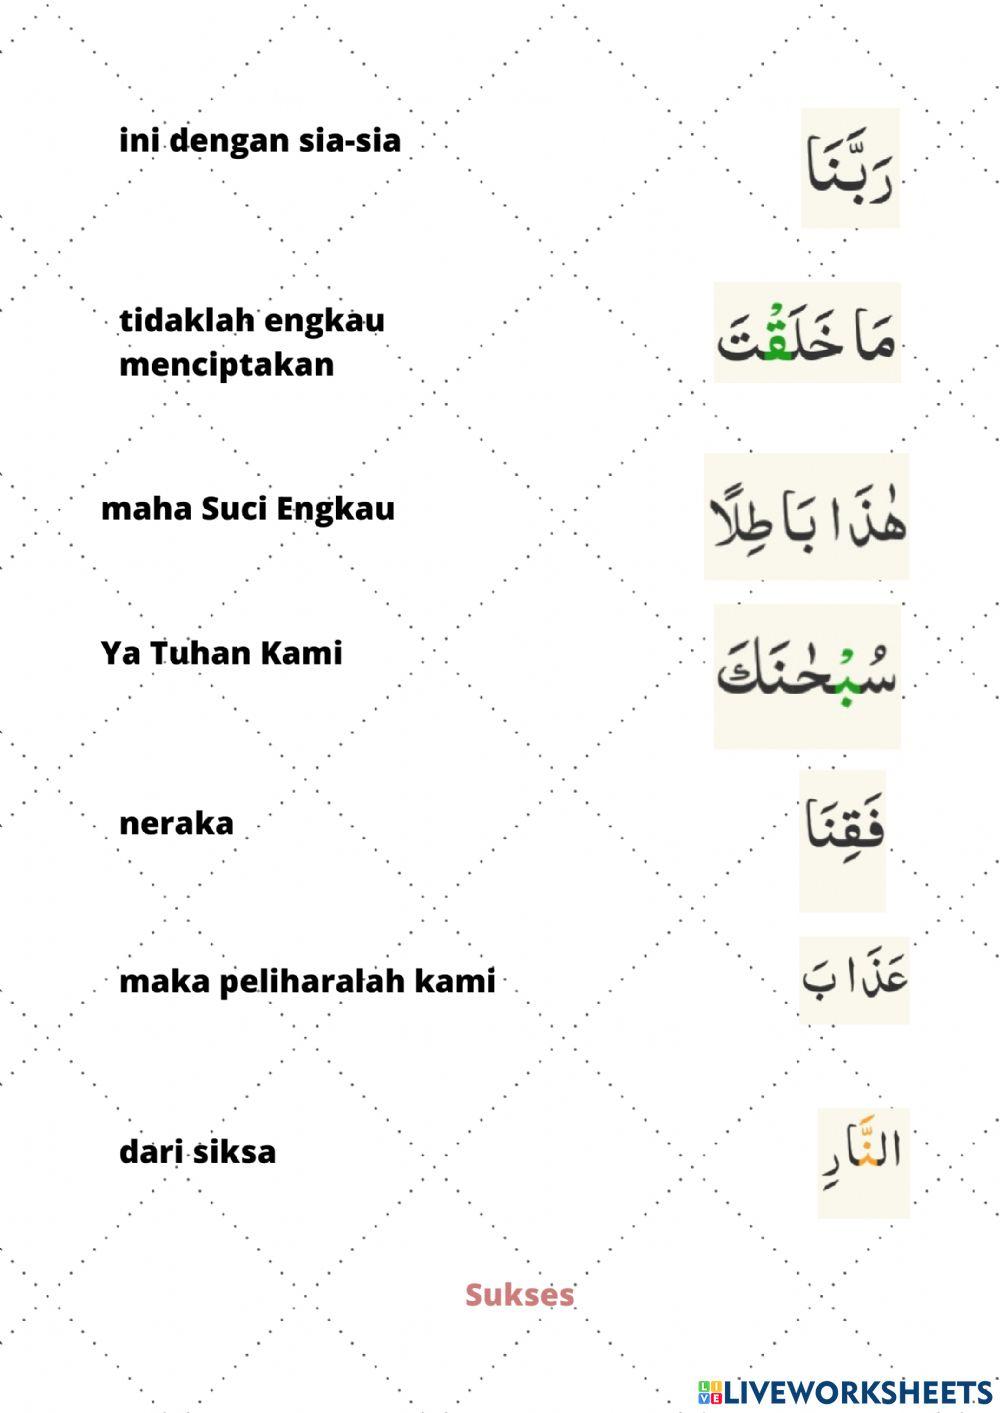 ini dengan sia-sia
رَبَّنَا
tidaklah engkau
menciptakan
مَا خَلَقْتَ
maha Suci Engkau
هٰذَا بَاطِلًا
Ya Tuhan Kami
سُبْحٰنَكَ
neraka
فَقِنَا
maka peliharalah kami
عَذَابَ
dari siksa
النَّارِ
Sukses
LIVEWORKSHEETS